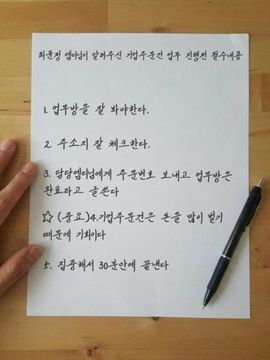 최윤정 엠디님이 알려주신 기업주문건 업무 진행전 필수내용
1. 업무방을 잘 봐야한다.
2. 주소지 잘 체크한다.
3. 담당엠디님에게 주문번호 보내고 업무방은
완료라고 글쓴다
☆ (중요)4.기업주문건은 돈을 많이 벌기
때문에 기회이다
5. 집중해서 30분안에 끝낸다